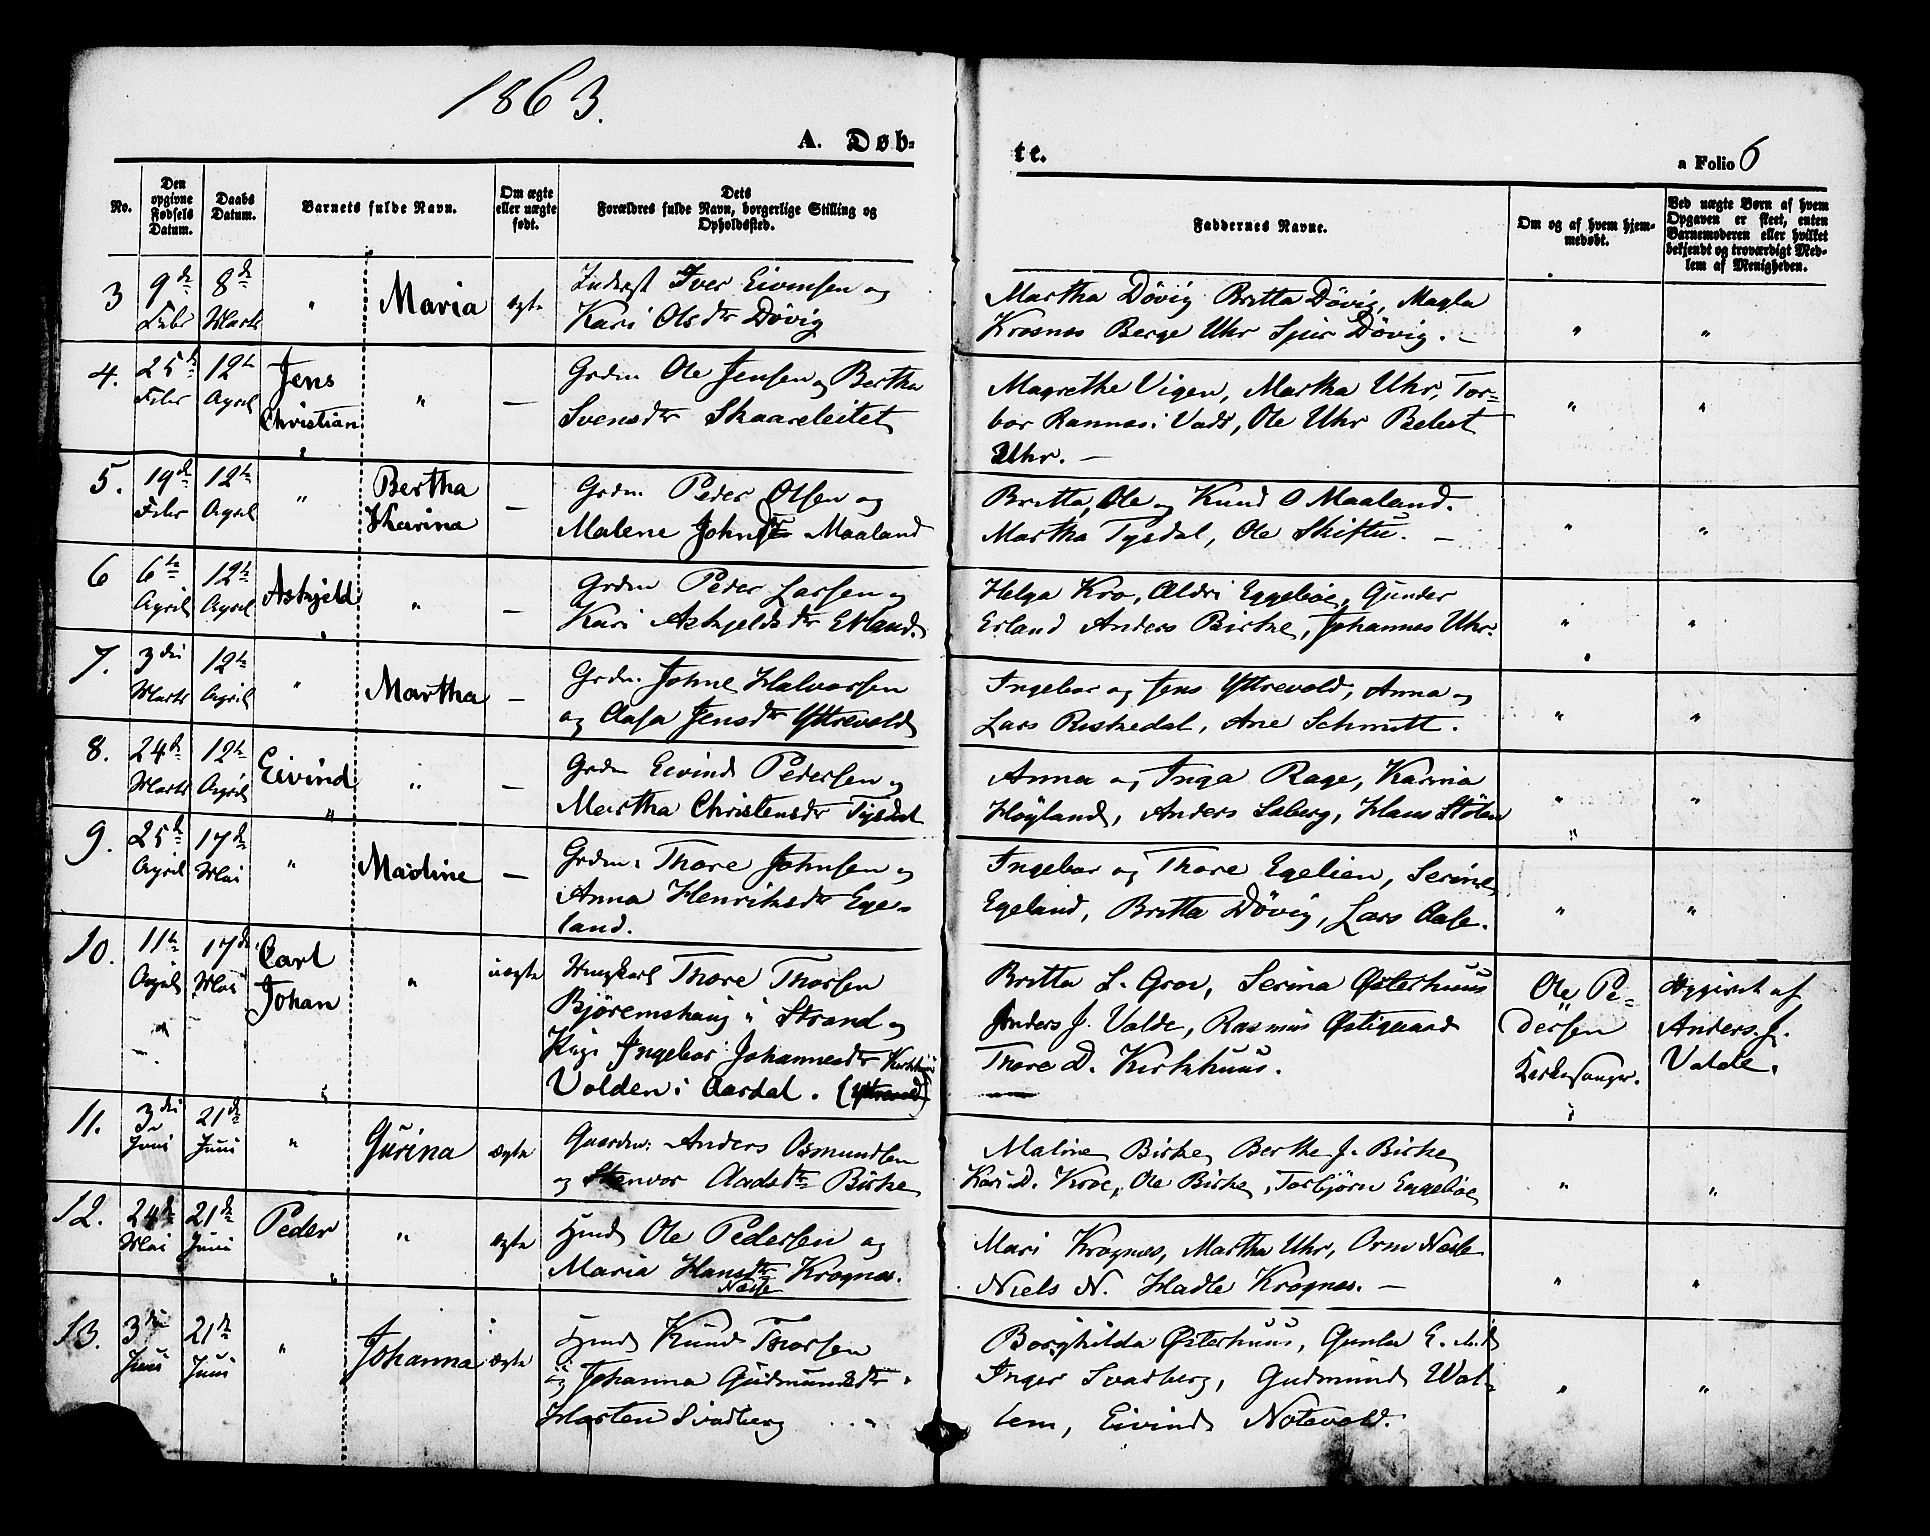 1863.
A. Døb-
te.
a Folio 6
No.
Den opgivne Fødsels Datum.
Daabs Datum.
Barnets fulde Navn.
Om ægte eller uægte født.
Dets Forældres fulde Navn, borgerlige Stilling og Opholdssted.
Faddernes Navne.
Om og af hvem hjemmedøbt.
Ved uægte Børn af hvem Opgaven er skeet, enten Barnemoderen eller hvilket bekjendt og troværdigt Medlem af Menigheden.
3 9de Febr 8de Marts " Maria ægte
Inderst Iver Eivensen og
Kari Olsdtr Dövig
Martha Dövig Britta Dövig, Magla
Krosnes Berge Uhr Sjur Dövig. —
" "
4. 25de Febr 12te April Jens Christian " —
Grdm Ole Jensen og Bertha
Svensdtr Skaareleitet
Magrethe Vigen, Martha Uhr, Tor-
bor Rannes i Vads, Ole Uhr Belest
Uhr. —
" "
5. 19de Febr 12te April " Bertha Karina —
Grdm. Peder Olsen og
Malene Johnsdtr Maaland
Britta, Ole og Knud O Maaland.
Martha Tysdal, Ole Skiftu. —
" "
6 6te April 12te April Askjeld " —
Grdm Peder Larsen og
Kari Askjeldsdtr Ekland.
Helga Kro, Aldri Eggeböe, Gunder
Erland Anders Birke, Johannes Uhr.
" "
7. 3die Marts 12te April " Martha —
Grdm. Johne Halvorsen
og Aasa Jensdtr Yttrevold
Ingebor og Jens Yttrevold, Anna og
Lars Riskedal, Ane Schmitt.
" "
8. 24de Marts 12te April Eivind " —
Grdm Eivind Pedersen og
Martha Christensdtr Tysdal
Anna og Inga Rage, Karina
Höyland, Anders Saberg, Hans Stölen
" "
9. 25de April 17de Mai " Madine —
Grdm. Thore Johnsen og
Anna Henriksdtr Ege-
land.
Ingebor og Thore Egelien, Serine
Egeland, Britta Dövig, Lars Aase.
" "
10. 11te April 17de Mai Carl Johan " uægte
Ungkarl Thore Thorsen
Björemshaug i Strand og
Pige Ingebor Johannesdtr Kirkhuus
Valden i Aardal. (Yttrevold)
Britta L. Grov, Serina Österhuus
Anders J. Valde, Rasmus Östigaard
Thore D. Kirkhuus.
Ole Pe-
dersen
Kirkesanger.
Opgivet af
Anders J.
Valde.
11. 3die Juni 21de Juni " Gurina ægte
Gaardm: Anders Osmundsen
og Stenvor Aadsdtr Birke
Maline Birke, Berthe J. Birke,
Kari D. Kroe, Ole Birke, Torbjörn Eggeböe
" "
12. 24de Mai 21de Juni Peder " ægte
Hmd Ole Pedersen og
Maria Hansdtr Krognes.
Næse
Mari Krognes, Martha Uhr, Orm Næse
Niels N. Hadle Krognes. —
" "
13. 3die Juni 21de Juni " Johanna ægte
Hmd Knud Thorsen
og Johanna Gudmundsdtr
Hästen Svadberg
Borghilda Österhuus, Gunla E.
Inger Svadberg, Gudmund Wat-
lem, Eivind Notevold.
" "